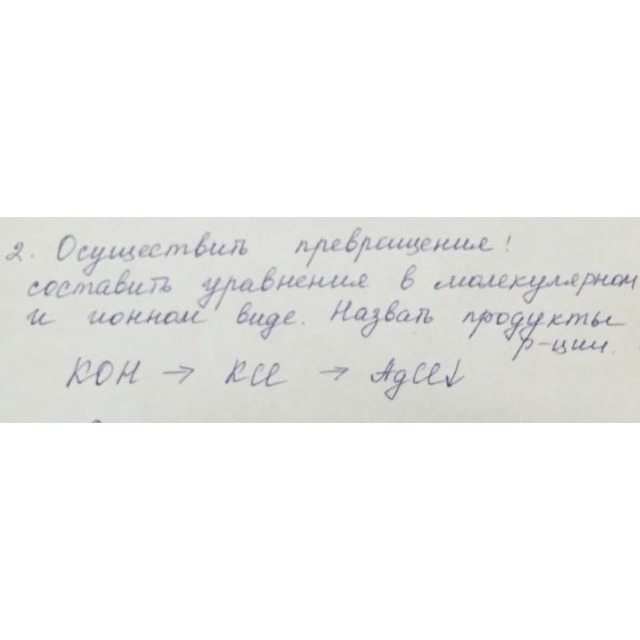 2. Осуществить превращения!
составить уравнения в молекулярном
и ионном виде. Назвать продукты
р-ции.
KOH → KCl → AgCl↓